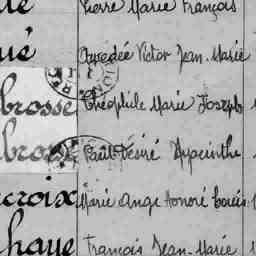 Pierre Marie François
ué Amédée Victor Jean-Marie
brosse Théophile Marie Joseph
brosse Paul Désiré Hyacinthe
croix Marie Ange Honoré Louis
haye François Jean-Marie